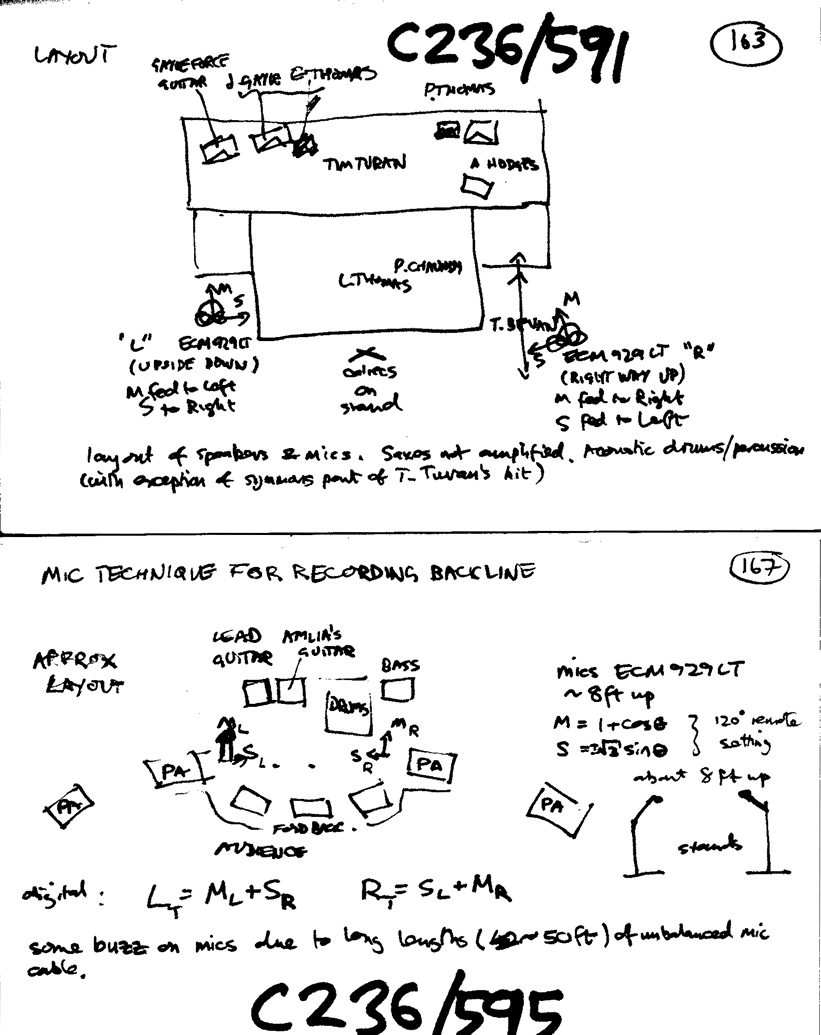 LAYOUT
C236/591
163
GATEFORCE GUITAR
J. GATE E. THOMAS
P.THOMAS
TIM TURAN
A HODGES
L.THOMAS
T. BEVAN
M
S
"L" ECM929LT
(UPSIDE DOWN)
M fed to Left
S to Right
calrecs
on
stand
M
S
ECM929LT "R"
(RIGHT WAY UP)
M fed to Right
S fed to Left
layout of speakers & mics. Saxes not amplified. Acoustic drums/percussion
(with exception of symmons part of T. Turan's kit)
MIC TECHNIQUE FOR RECORDING BACKLINE
167
APPROX
LAYOUT
LEAD
GUITAR
AMLIA'S
GUITAR
BASS
DRUMS
M L
S L
M R
S R
PA
PA
PA
PA
FOLDBACK.
AUDIENCE
mics ECM929LT
~8ft up
M = 1+cosθ
S = sinθ
120° remote
setting
about 8ft up
stands
digital: L_T = M_L+S_R R_T = S_L+M_R
some buzz on mics due to long lengths (~50ft) of unbalanced mic
cable.
C236/595